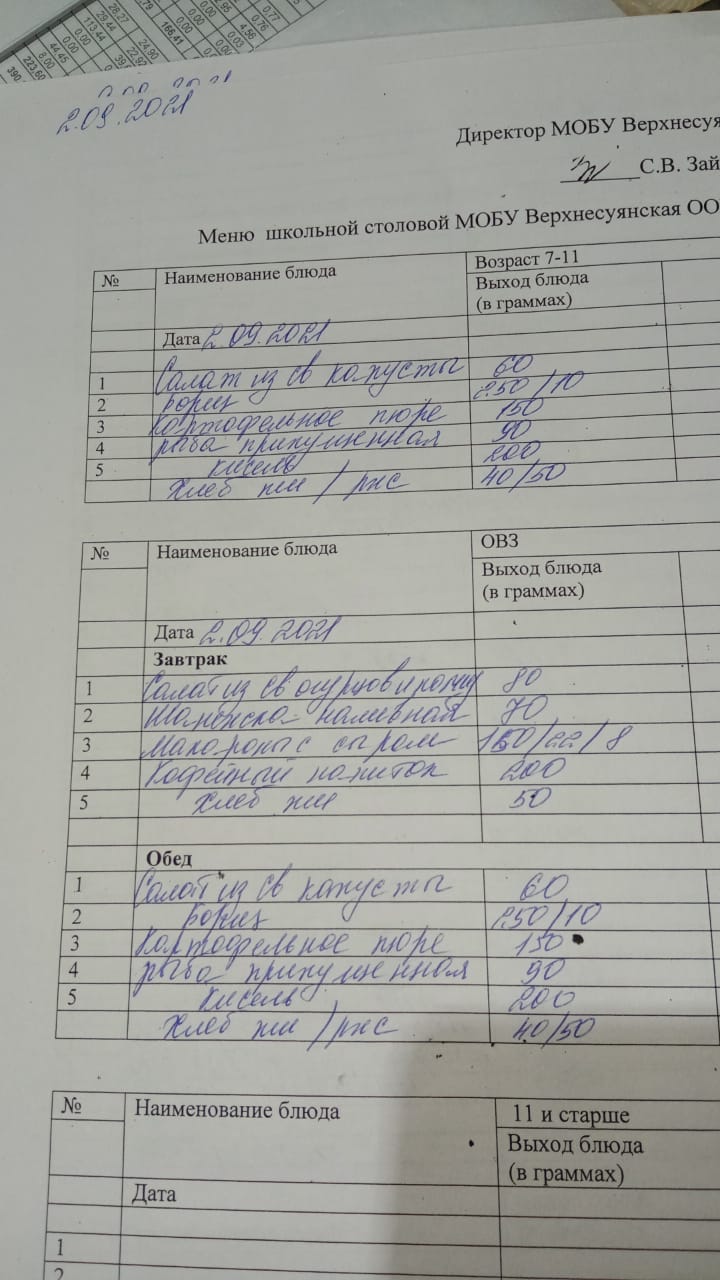 2.09.2021
Директор МОБУ Верхнесуя
С.В. Зай
Меню школьной столовой МОБУ Верхнесуянская ОО
№ Наименование блюда Возраст 7-11
Выход блюда
(в граммах)
Дата 2.09.2021
1 Салат из св капусты 60
2 борщ 250/10
3 Картофельное пюре 150
4 рыба припущенная 90
5 кисель 200
Хлеб пш / рж 40/50
№ Наименование блюда ОВЗ
Выход блюда
(в граммах)
Дата 2.09.2021
Завтрак
1 Салат из св огурцов и 80
2 Шанежка наливная 70
3 Макароны с сыром 150/22/8
4 Кофейный напиток 200
5 Хлеб пш 50
Обед
1 Салат из св капусты 60
2 борщ 250/10
3 Картофельное пюре 150
4 рыба припущенная 90
5 кисель 200
Хлеб пш / рж 40/50
№ Наименование блюда 11 и старше
Выход блюда
(в граммах)
Дата
1
2